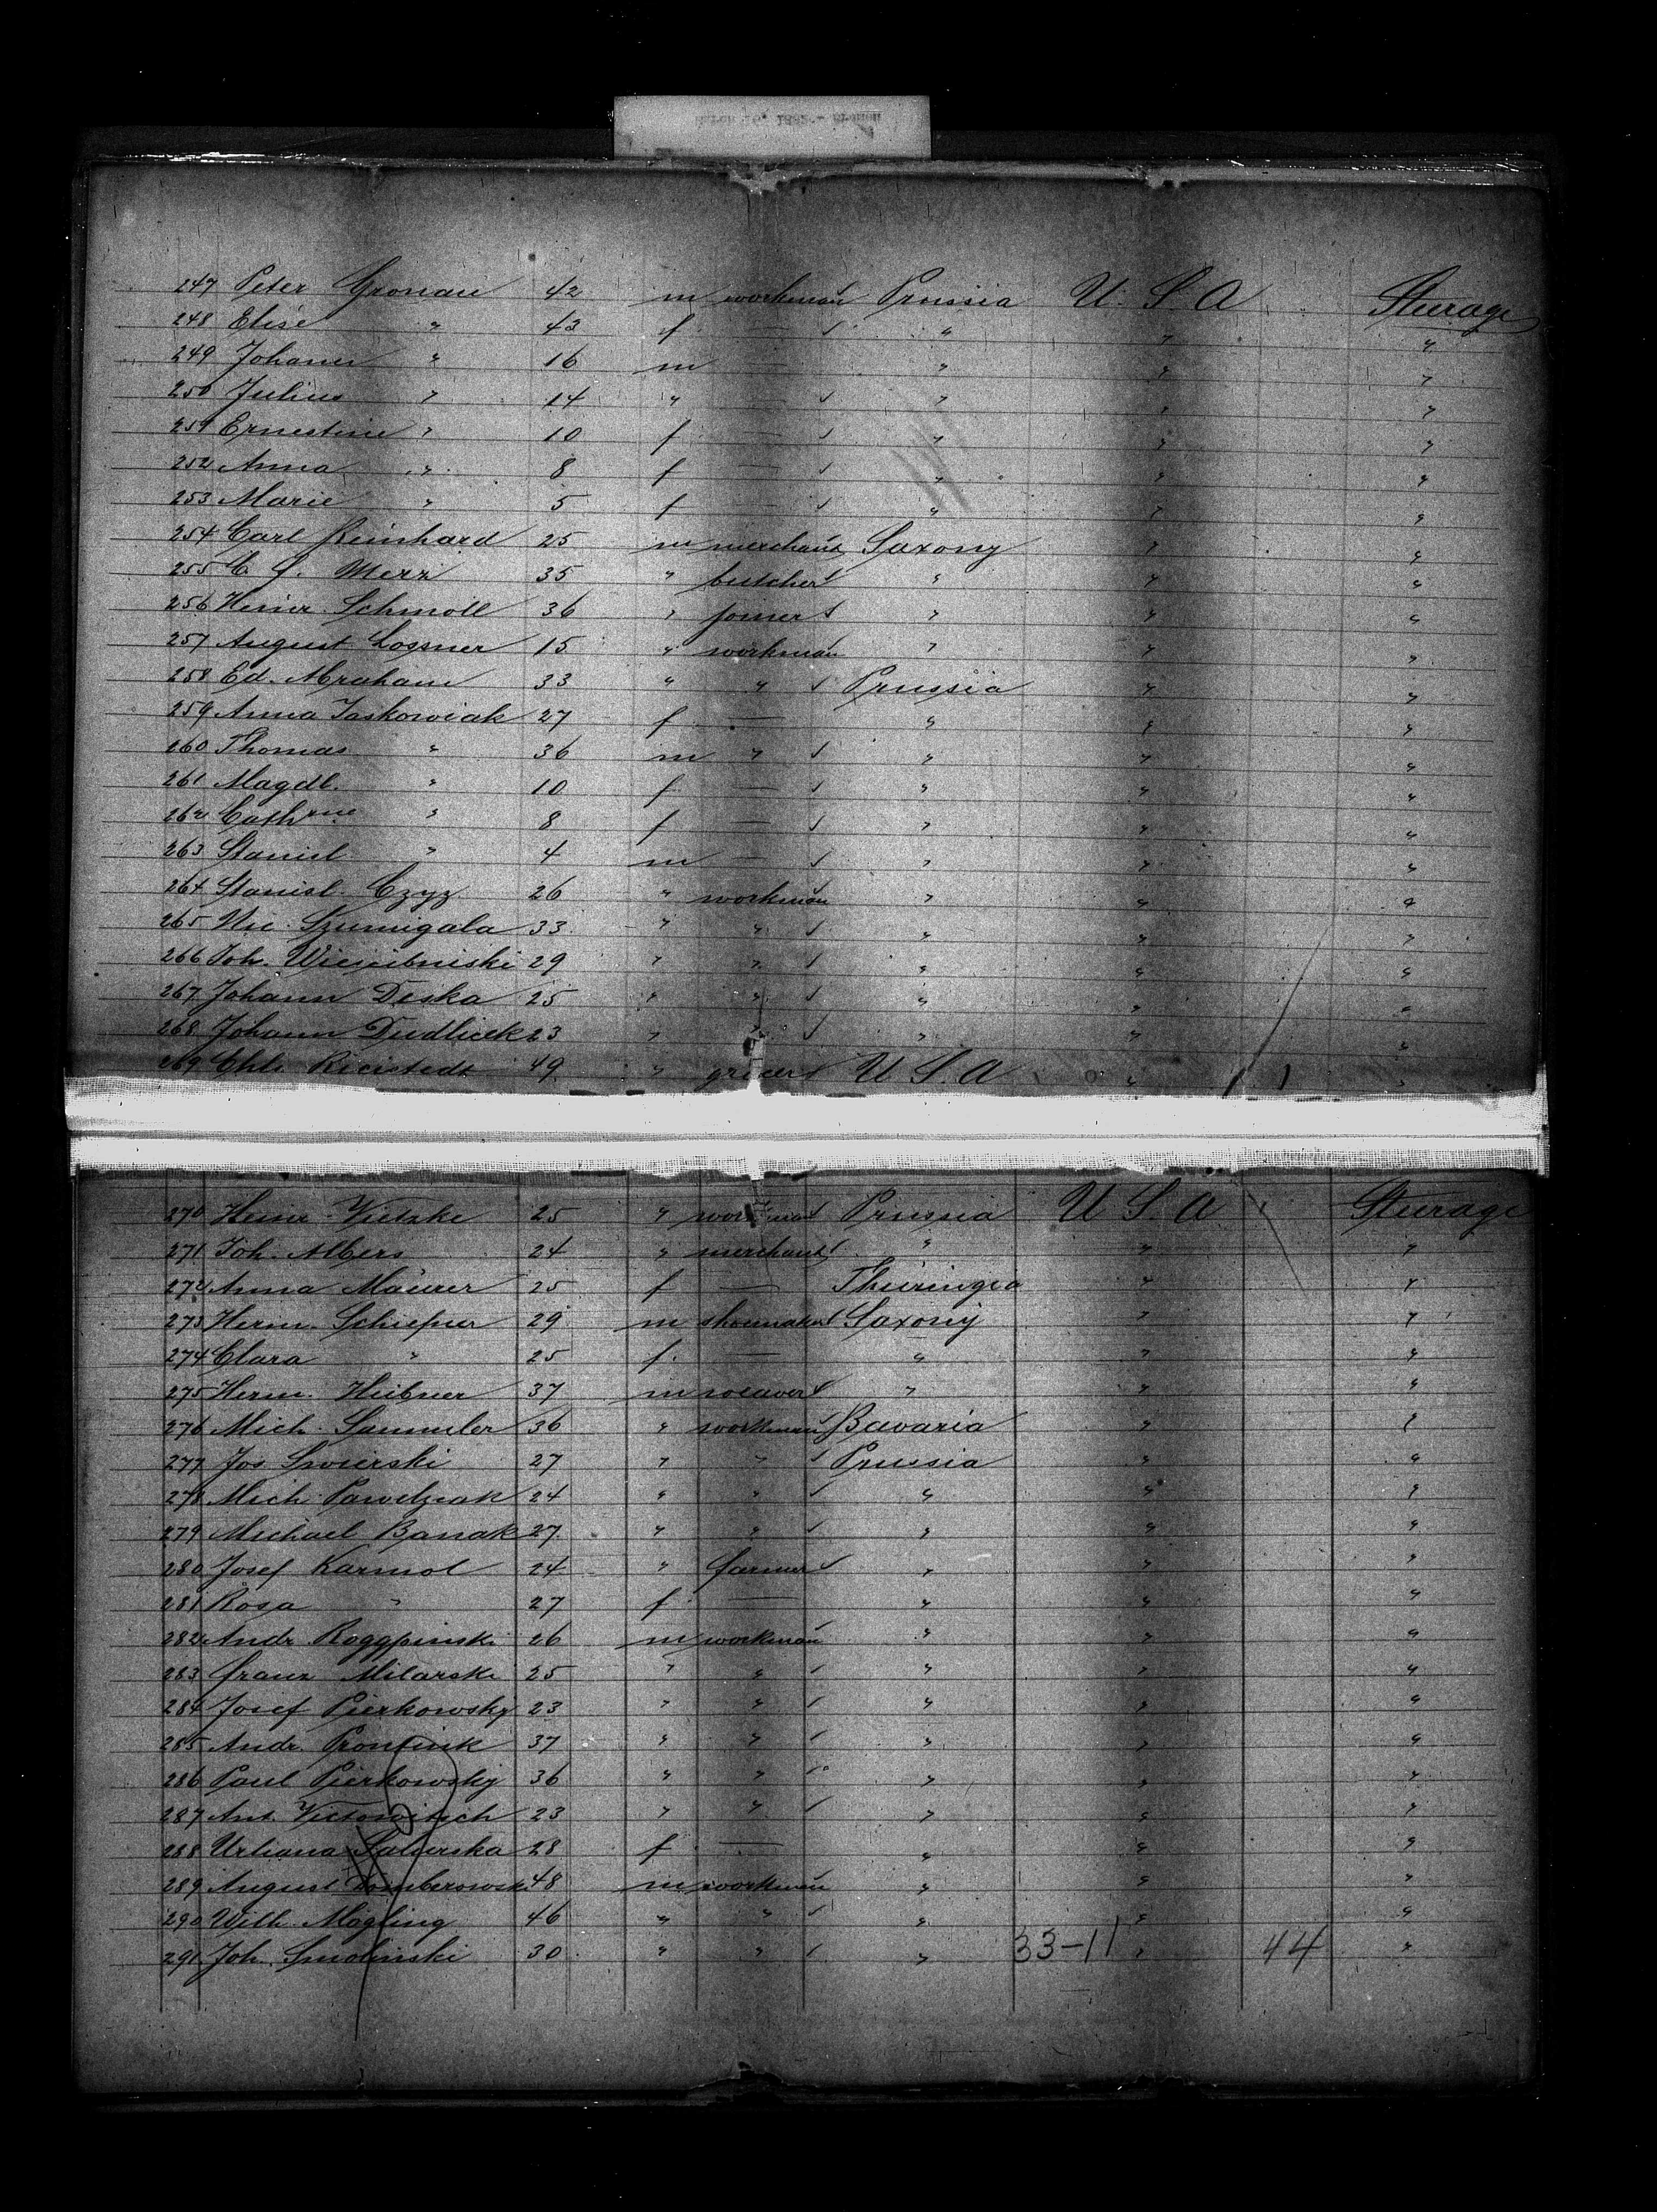 247 Peter Gronau 42 m workman Prussia U. S. A Steerage
248 Elise " 43 f — " " "
249 Johann " 16 m — " " "
250 Julius " 14 " — " " "
251 Ernestine " 10 f — " " "
252 Anna " 8 f — " " "
253 Marie " 5 f — " " "
254 Carl Reinhard 25 m merchant Saxony " "
255 C. F. Merz 35 " butcher " " "
256 Heinr. Schmoll 36 " joiner " " "
257 August Lossner 15 " workman " " "
258 Ed. Abraham 33 " " Prussia " "
259 Anna Jaskowiak 27 f — " " "
260 Thomas " 36 m " " " "
261 Magdl. " 10 f — " " "
262 Cathrne " 8 f — " " "
263 Stanisl. " 4 m — " " "
264 Stanisl. Czyz 26 " workman " " "
265 Szumigala 33 " " " " "
266 Joh. 29 " " " " "
267 Johann Deska 25 " " " " "
268 Johann Dudlicek 23 " " " " "
269 49 " grocer U. S. A " "
270 Heinr. Vietzke 25 " workman Prussia U. S. A Steerage
271 Joh. Albers 24 " merchant " " "
272 Anna Maurer 25 f — Thuringia " "
273 Herm. Schiefner 29 m shoemaker Saxony " "
274 Clara " 25 f. — " " "
275 Herm. Hübner 37 m weaver " " "
276 Mich. Sammler 36 " workman Bavaria " "
277 Jos. Swierski 27 " " Prussia " "
278 Mich. Pawelziak 24 " " " " "
279 Michael Banak 27 " " " " "
280 Josef Karmol 24 " farmer " " "
281 Rosa " 27 f — " " "
282 Andr. 26 m workman " " "
283 Franz Milarski 25 " " " " "
284 Josef Pierkowsky 23 " " " " "
285 Andr. 37 " " " " "
286 Paul Pierkowsky 36 " " " " "
287 Ant. 23 " " " " "
288 28 f — " " "
289 August Dombrowski 48 m workman " " "
290 Wilh. Mögling 46 " " " " "
291 Joh. Smolinski 30 " " " 33-11 " 44 "